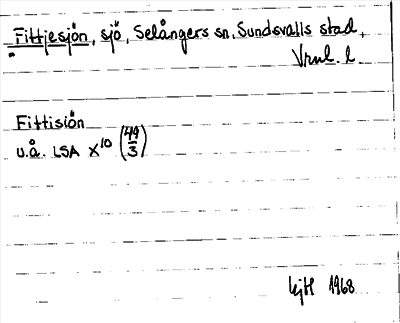 Fittjesjön, sjö, Selångers sn, Sundsvalls stad,
Vrnl. l
Fittisiön
u.å. LSA X10 (49/3)
1968